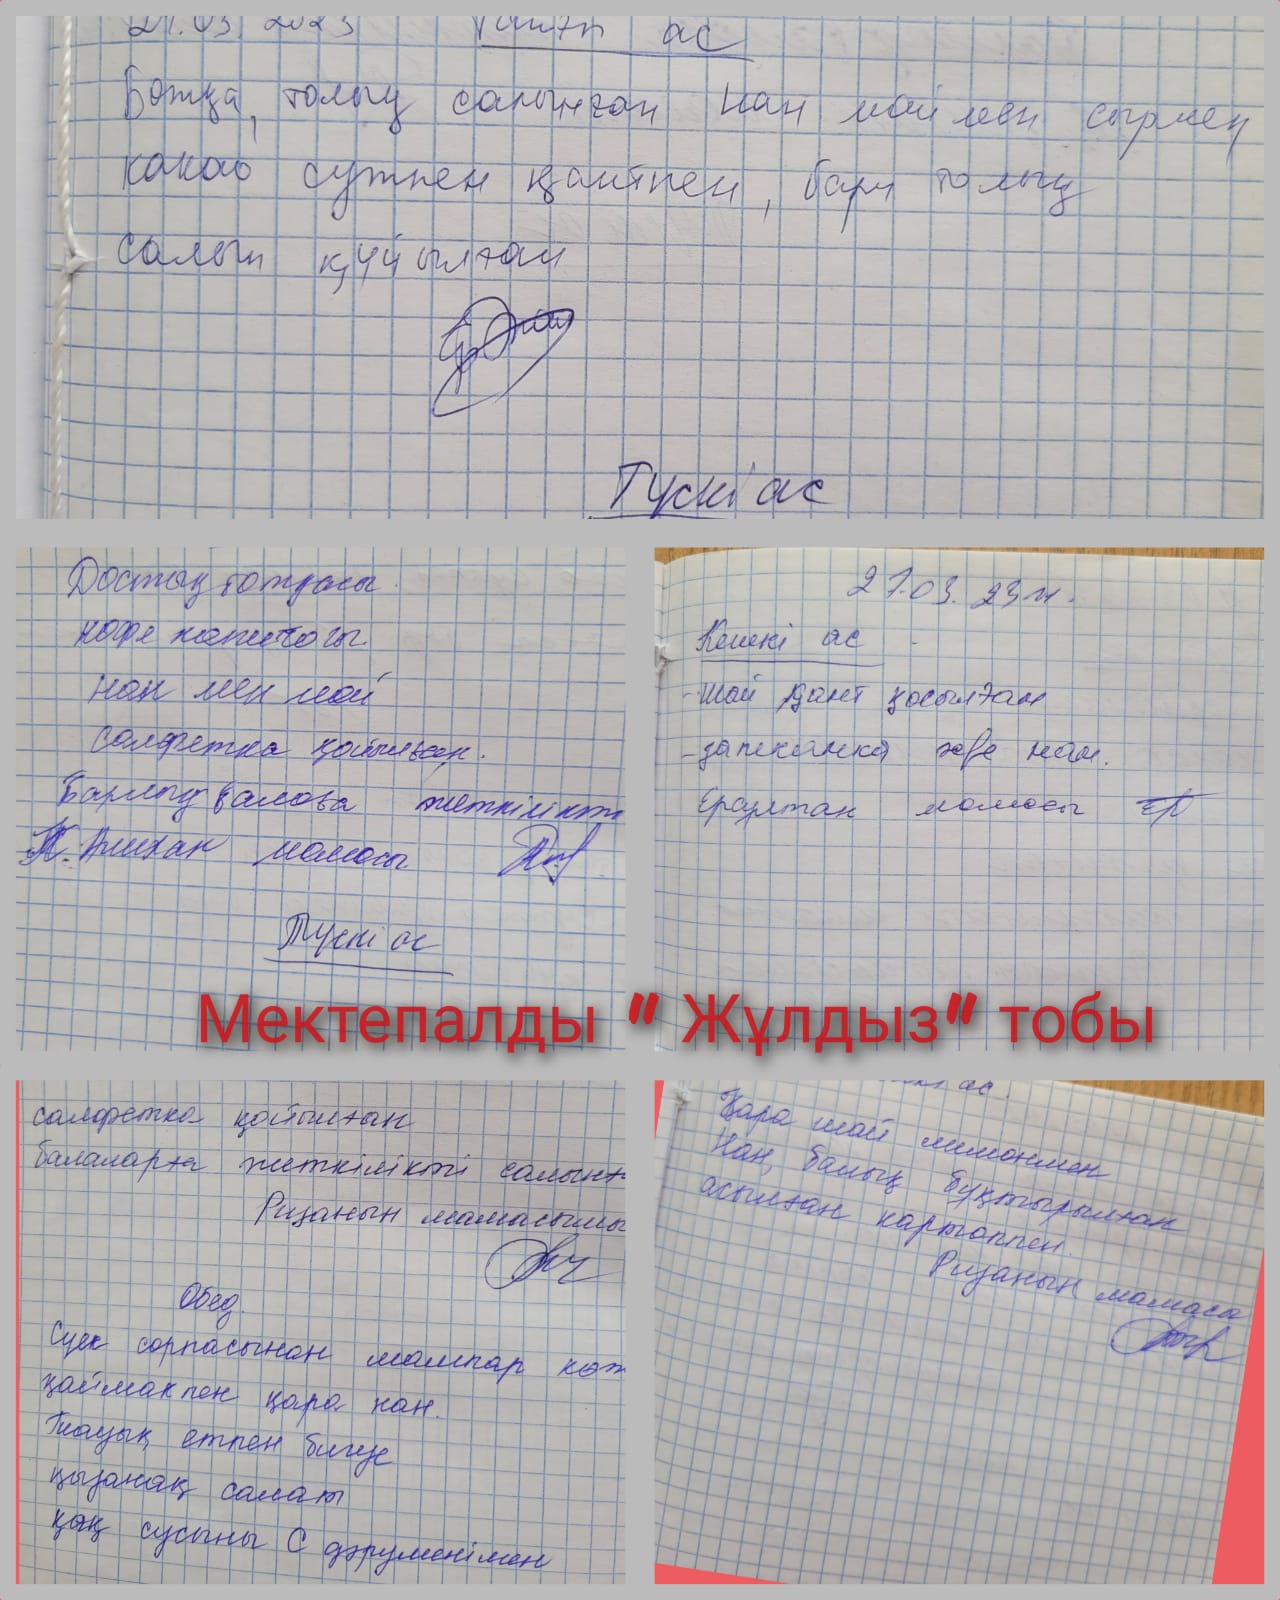 21.03.2023 Таңғы ас
Ботқа, толық салынған нан май мен сырмен
какао сүтпен қантпен, бәрі толық
салып құйылған
Түскі ас
Достық ботқасы.
кофе напитогы.
нан мен май
салфетка қойылған.
Барлығы балаға жеткілікті
Әлихан мамасы
Түскі ас
21.03.23ж.
Кешкі ас
-шай қант қосылған
-запеканка және нан.
Ерсұлтан мамасы ЕР
Мектепалды " Жұлдыз" тобы
салфетка қойылған
балаларға жеткілікті салынғ
Ризаның мамасымы
Обед.
Сүек сорпасынан мампар көж
қаймакпен қара нан.
Тауық етпен бигус
қызанақ салаты
қақ сусыны С дәруменімен
ас.
Қара шай лимонмен
Нан, балық бұқтырылған
асылған картоппен.
Ризаның мамасы